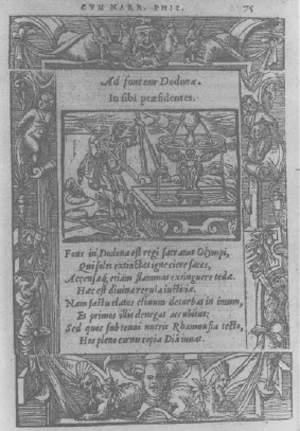 CVM NARR. PHIL. 75
Ad fontem Dodonæ.
In sibi præsidentes.
Fons in Dodona est regi sacratus Olympi,
Qui solet extinctas igne ciere faces,
Accensasq́, etiam flammas extinguere tedæ.
Hæc est divinæ regula iustitiæ.
Nam fastu elatos clivum deturbat in imum,
Et primos illis denegat accubitus:
Sed quos sub tenui nutrit Rhamnusia tecto,
Hos pleno cornu copia Dia iuvat.